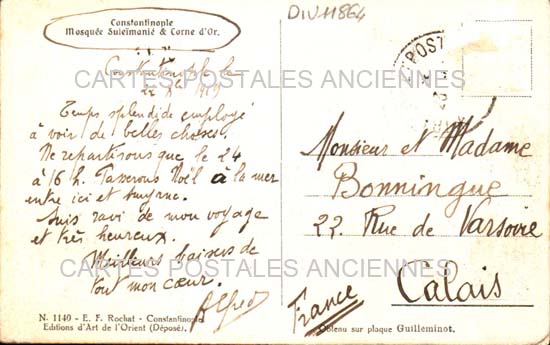 Constantinople
Mosquée Suleïmanié & Corne d'Or.
DIV11864
POST
CARTES POSTALES ANCIENNES
Constantinople le
22
Temps splendide employé
à voir de belles choses.
Ne repartirons que le 24
à 16 h. Passerons Noël à la mer
entre ici et Smyrne.
Suis ravi de mon voyage
et très heureux.
Meilleurs baisers de
tout mon cœur.
Alfred
Monsieur et Madame
Bonningue
22 Rue de Varsovie
Calais
France
CARTES POSTALES ANCIENNES
N. 1140 - E. F. Rochat - Constantinople
Editions d'Art de l'Orient (Déposé).
Obtenu sur plaque Guilleminot.